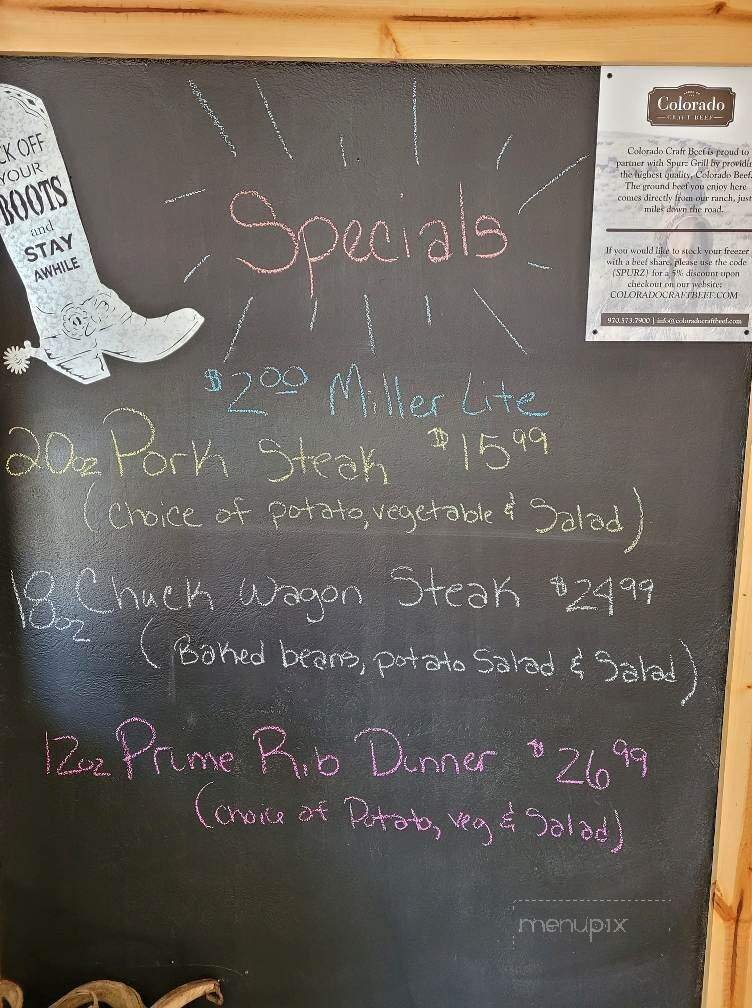 CK OFF
YOUR
BOOTS
and
STAY
AWHILE
Colorado
CRAFT BEEF
Colorado Craft Beef is proud to
partner with Spurz Grill by providi
the highest quality, Colorado Beef.
The ground beef you enjoy here
comes directly from our ranch, just
miles down the road.
If you would like to stock your freezer
with a beef share, please use the code
(SPURZ) for a 5% discount upon
checkout on our website:
COLORADOCRAFTBEEF.COM
970.573.7900 | info@coloradocraftbeef.com
Specials
$2.00 Miller Lite
20oz Pork Steak $15.99
(choice of potato, vegetable & Salad)
18oz Chuck Wagon Steak $24.99
(Baked beans, potato Salad & Salad)
12oz Prime Rib Dinner $26.99
(choice of Potato, veg & Salad)
menupix